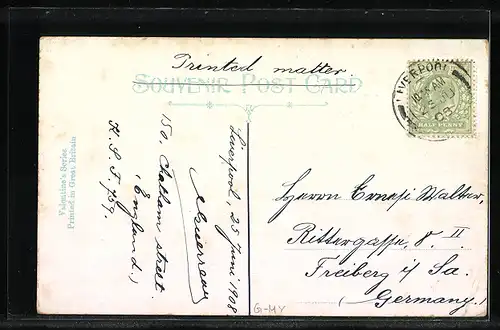 Printed matter
SOUVENIR POST CARD
LIVERPOOL
HALFPENNY
Valentine's Series
Printed in Great Britain
Liverpool, 25 Juni 1908.
150. Chatham street
(England.)
Herrn Ernst Walter,
Rittergasse, 8 II
Freiberg i/Sa.
(Germany.)
G-MY